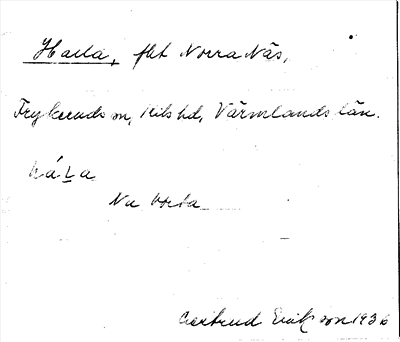 Harla, fht Norra Näs,
Frykeruds sn, Kils hd, Värmlands län.
háLa
Nu borta
Gertrud Eriksson 1936